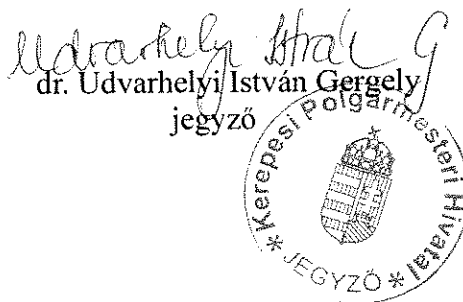 Udvarhelyi István G
dr. Udvarhelyi István Gergely
jegyző
Kerepesi Polgármesteri Hivatal
* JEGYZŐ *